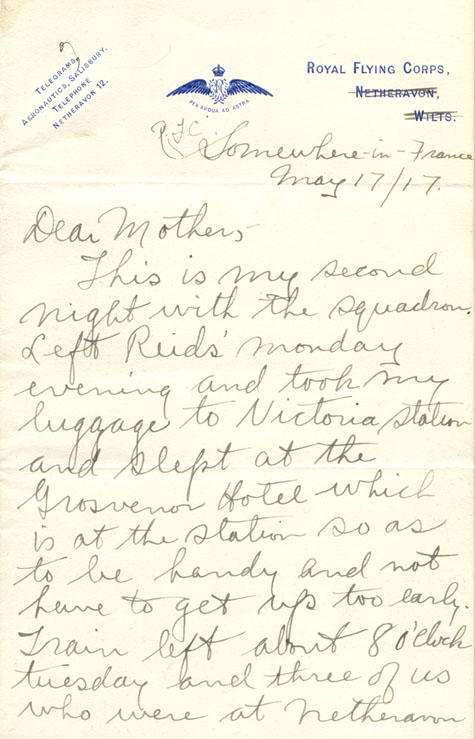 TELEGRAMS,
AERONAUTICS, SALISBURY.
TELEPHONE
NETHERAVON 12.
PER ARDUA AD ASTRA
ROYAL FLYING CORPS,
NETHERAVON,
WILTS.
Somewhere-in-France
May 17/17.
Dear Mother,-
This is my second
night with the squadron.
Left Reids' monday
evening and took my
luggage to Victoria station
and slept at the
Grosvenor Hotel which
is at the station so as
to be handy and not
have to get up too early.
Train left about 8 o'clock
tuesday and three of us
who were at netheravon